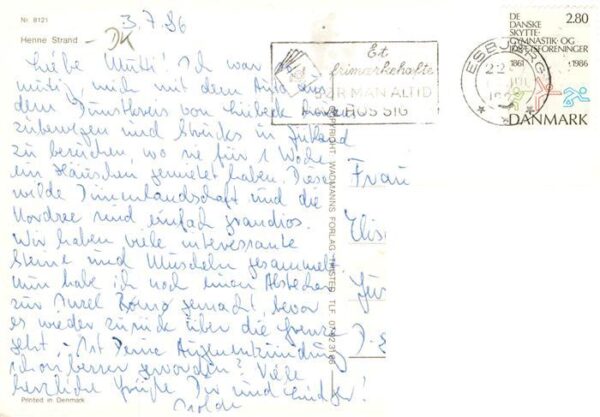 Nr. 8121
3.7.86
Henne Strand
DK
Liebe Mutti! Ich war so
mutig, mich mit dem Auto aus
dem Dunstkreis von Lübeck
zubewegen und in Jütland
zu besuchen, wo sie für 1 Woche
ein Häuschen gemietet haben. Diese
wilde Dünenlandschaft und die
Nordsee sind einfach grandios.
Wir haben viele interessante
Steine und Muscheln gesammelt.
Nun habe ich noch einen Abstecher
zur Insel Römö gemacht, bevor
es wieder zurück über die Grenze
geht. - Ist Deine Augenentzündung
schon besser geworden? Viele
herzliche Grüße Dir und
Printed in Denmark
COPYRIGHT WADMANNS FORLAG THISTED TLF
Et
frimærkehæfte
BØR MAN ALTID
HA' HOS SIG
ESBJERG
DE
DANSKE
SKYTTE-
GYMNASTIK- OG
IDRÆTSFORENINGER
2.80
1861
1986
DANMARK
Frau
Für